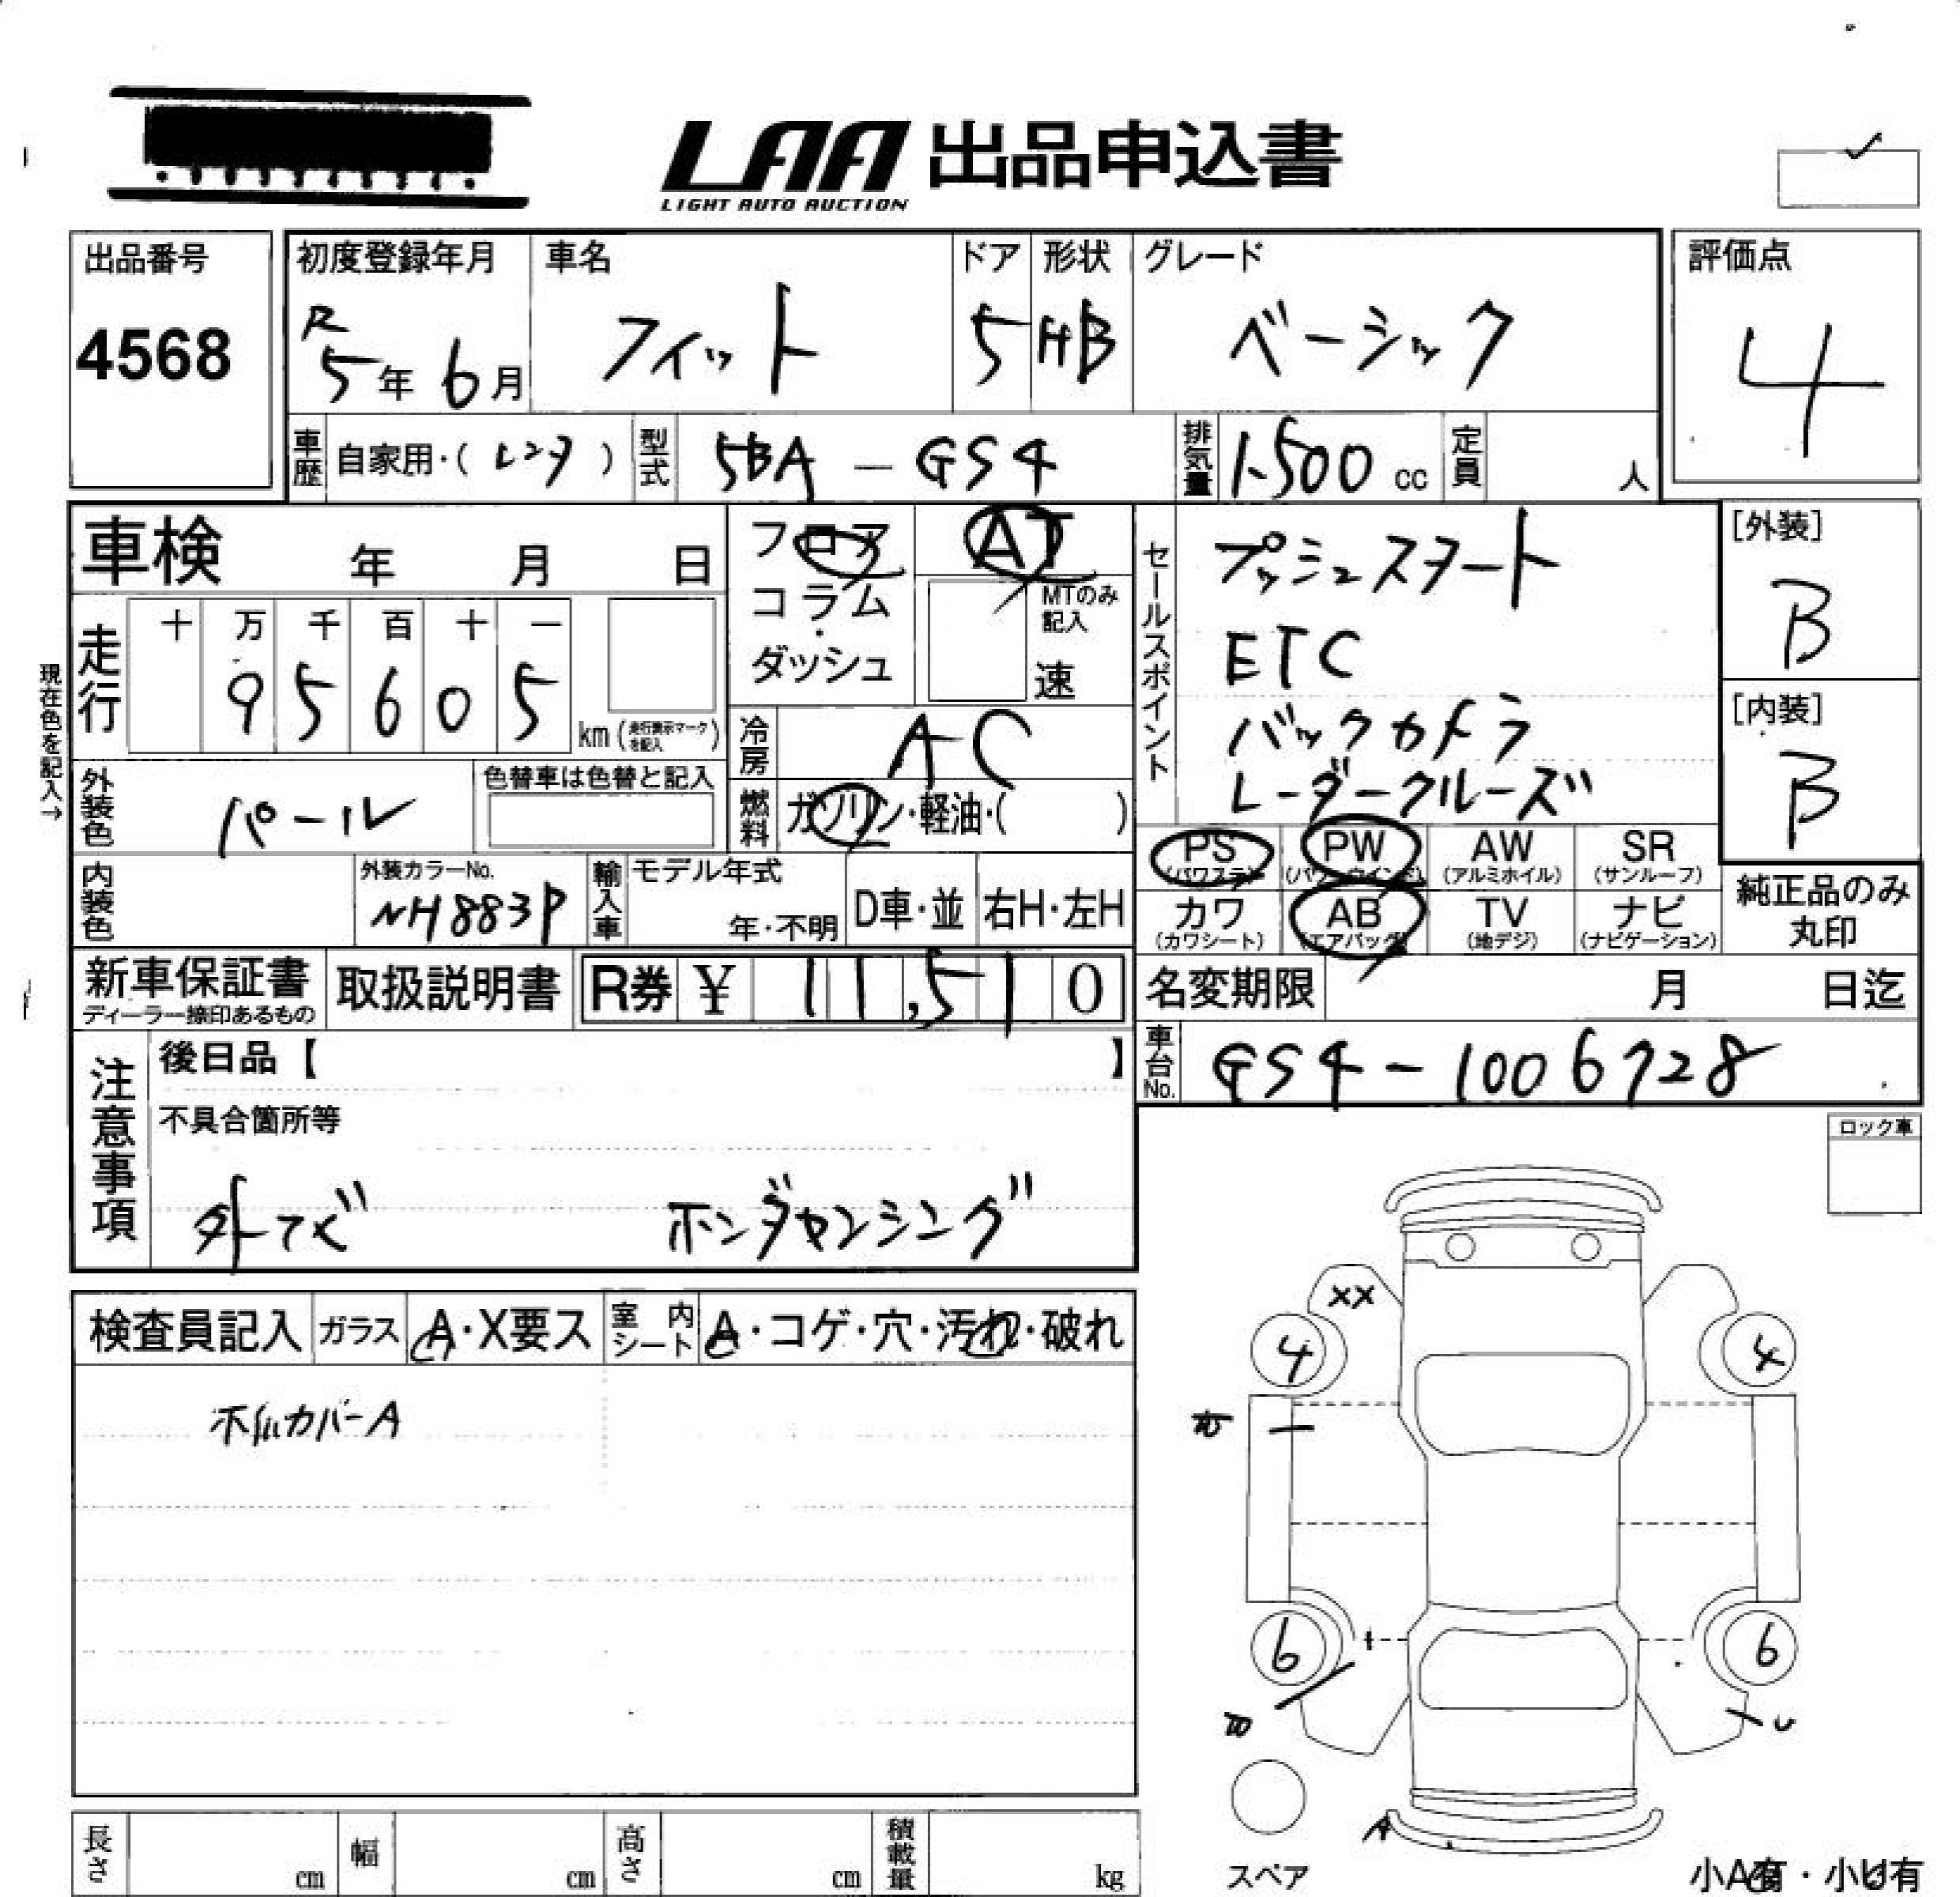 LAA 出品申込書
LIGHT AUTO AUCTION
出品番号
4568
初度登録年月 車名 ドア 形状 グレード
R5年6月 フィット 5 HB ベーシック
評価点
4
車歴 自家用・(レンタ) 型式 5BA-GS4 排気量 1500cc 定員 人
車検 年 月 日
フロア
コラム・
ダッシュ
AT
MTのみ記入
速
現在色を記入→
走行 十 万 千 百 十 一
9 5 6 0 5 km(走行表示マークを記入)
冷房 AC
燃料 ガソリン・軽油・( )
外装色 パール 色替車は色替と記入
内装色 外装カラーNo. NH883P
輸入車 モデル年式 年・不明 D車・並 右H・左H
新車保証書 ディーラー捺印あるもの
取扱説明書
R券 ¥ 11,510
セールスポイント
プッシュスタート
ETC
バックカメラ
レーダークルーズ
[外装]
B
[内装]
B
PS (パワステ) PW (パワーウインド) AW (アルミホイル) SR (サンルーフ)
カワ (カワシート) AB (エアバッグ) TV (地デジ) ナビ (ナビゲーション)
純正品のみ丸印
名変期限 月 日迄
車台No. GS4-1006728
注意事項
後日品【 】
不具合箇所等
ホンダセンシング
ロック車
検査員記入 ガラス A・X要ス 室内シート A・コゲ・穴・汚れ・破れ
カバーA
XX
4 4
6 6
A
スペア
小A有・小U有
長さ cm 幅 cm 高さ cm 積載量 kg